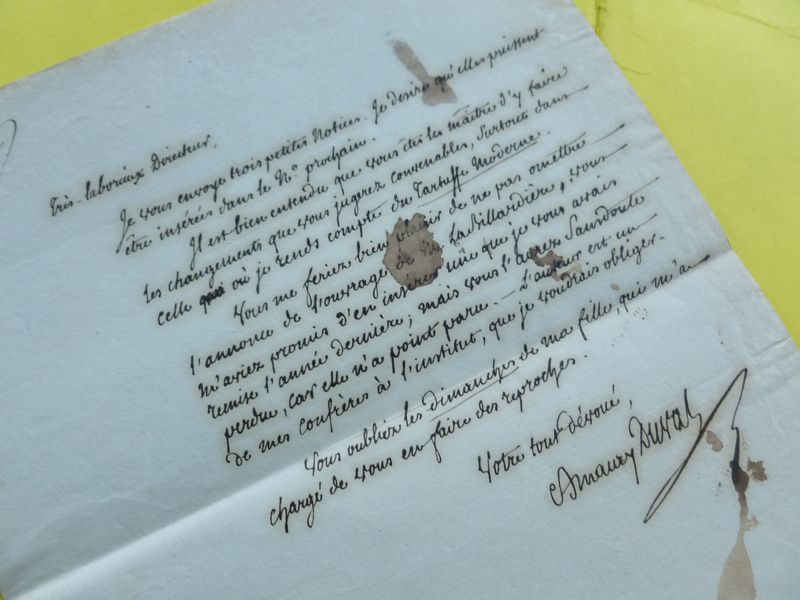 Très-laborieux Directeur,
Je vous envoye trois petites Notices. Je desire qu'elles puissent
être insérées dans le N.° prochain.
Il est bien entendu que vous êtes le maître d'y faire
les changements que vous jugerez convenables, surtout dans
celle où je rends compte du Tartuffe Moderne.
Vous me feriez bien plaisir de ne pas omettre
l'annonce de l'ouvrage de M. LaBillardière; vous
m'aviez promis d'en insérer une que je vous avais
remise l'année dernière; mais vous l'aurez sansdoute
perdue, car elle n'a point paru. — L'auteur est un
de mes confrères à l'institut, que je voudrais obliger.
Vous oubliez les dimanches de ma fille, qui m'a
chargé de vous en faire des reproches.
Votre tout dévoué,
Amaury Duval